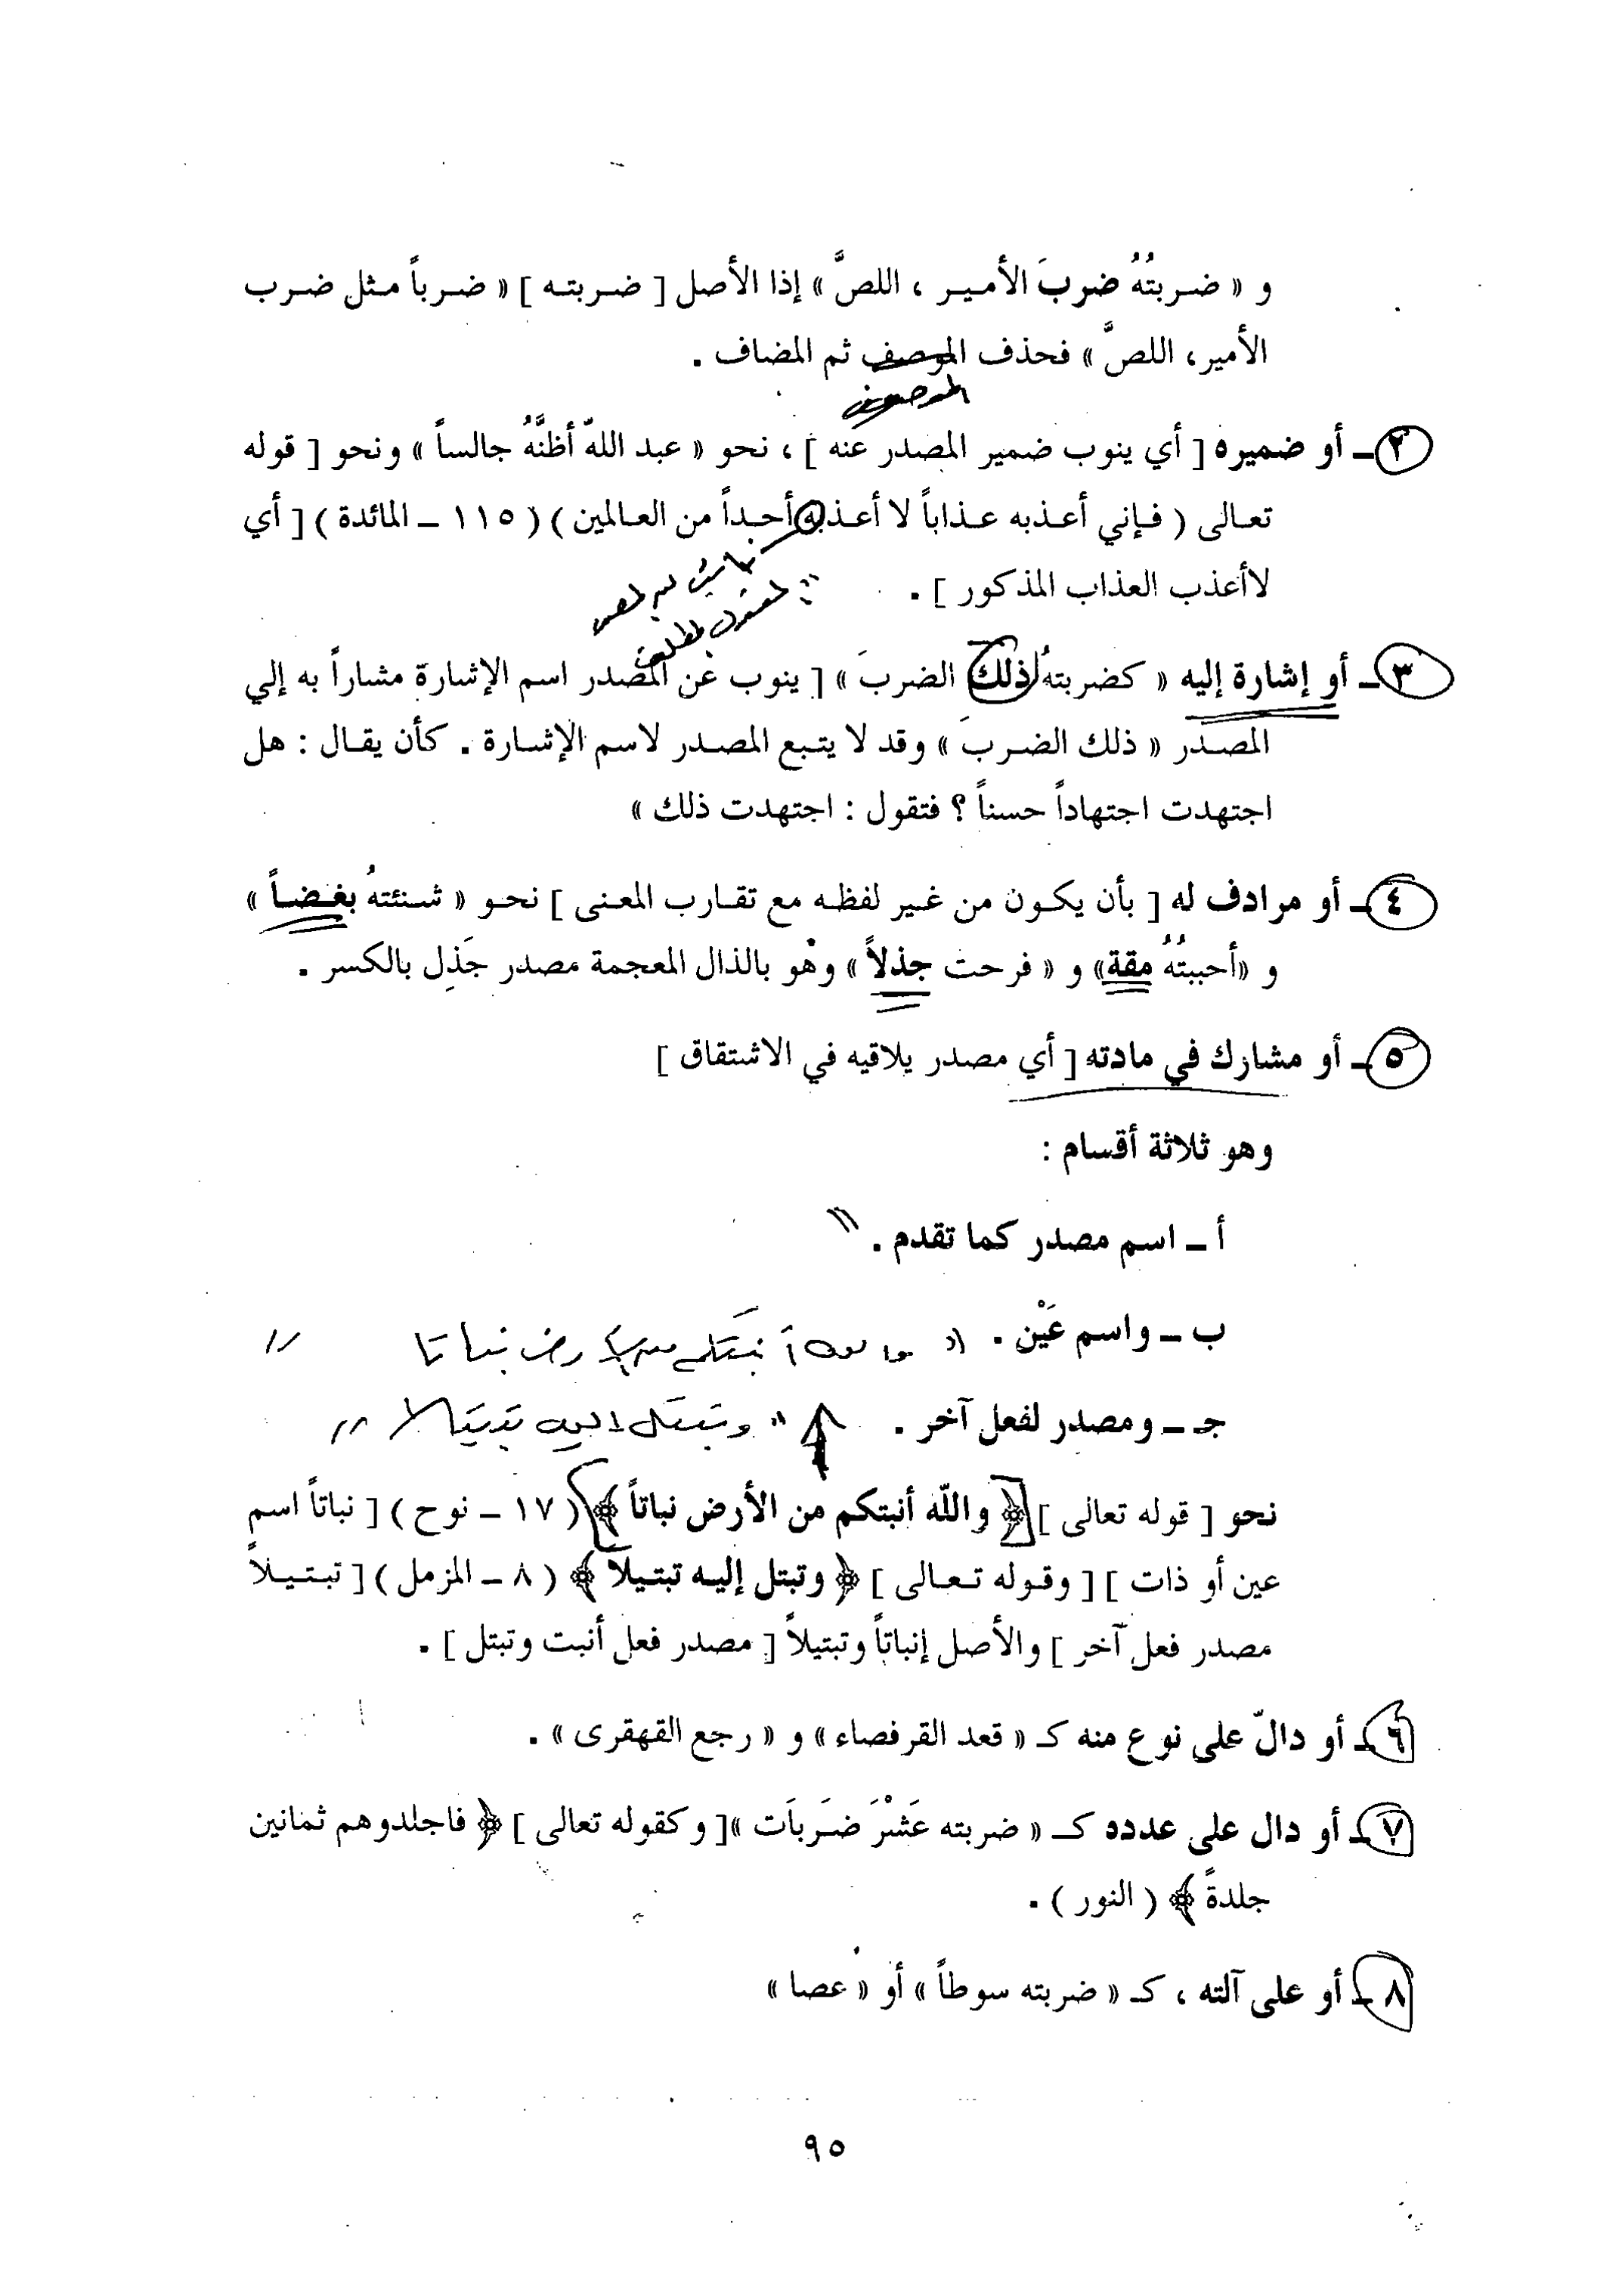 و « ضربتُهُ ضربَ الأمير ، اللصَّ » إذا الأصل [ ضربته ] « ضرباً مثل ضرب
الأمير، اللصَّ » فحذف الموصف ثم المضاف .
الموصوف
٢ ـ أو ضميره [ أي ينوب ضمير المصدر عنه ] ، نحو « عبد اللهّ أظنَّهُ جالساً » ونحو [ قوله
تعالى ( فإني أعذبه عذاباً لا أعذبه أحداً من العالمين ) ( ١١٥ ـ المائدة ) [ أي
لاأعذب العذاب المذكور ] .
٣ ـ أو إشارة إليه « كضربتهُ ذلك الضربَ » [ ينوب عن المصدر اسم الإشارة مشاراً به إلي
المصدر « ذلك الضربَ » وقد لا يتبع المصدر لاسم الإشارة . كأن يقال : هل
اجتهدت اجتهاداً حسناً ؟ فتقول : اجتهدت ذلك »
٤ ـ أو مرادف له [ بأن يكون من غير لفظه مع تقارب المعنى ] نحو « شنئتهُ بغضاً »
و «أحببتُهُ مقة» و « فرحت جذلاً » وهُو بالذال المعجمة مصدر جَذِل بالكسر .
٥ ـ أو مشارك في مادته [ أي مصدر يلاقيه في الاشتقاق ]
وهو ثلاثة أقسام :
أ ـ اسم مصدر كما تقدم .
ب ـ واسم عَيْن . " والله أنبتكم من الأرض نباتا "
جـ ـ ومصدر لفعل آخر . " وتبتل إليه تبتيلا "
نحو [ قوله تعالى ] ﴿ واللّه أنبتكم من الأرض نباتاً ﴾ ( ١٧ ـ نوح ) [ نباتاً اسم
عين أو ذات ] [ وقوله تعالى ] ﴿ وتبتل إليه تبتيلاً ﴾ ( ٨ ـ المزمل ) [ تبتيلاً
مصدر فعل آخر ] والأصل إنباتاً وتبتيلاً [ مصدر فعل أنبت وتبتل ] .
٦ ـ أو دالّ على نوع منه كـ « قعد القرفصاء » و « رجع القهقرى » .
٧ ـ أو دال على عدده كـ « ضربته عَشْرَ ضَرَبَات » [ وكقوله تعالى ] ﴿ فاجلدوهم ثمانين
جلدةً ﴾ ( النور ) .
٨ ـ أو على آلته ، كـ « ضربته سوطاً » أو « عصا »
٩٥